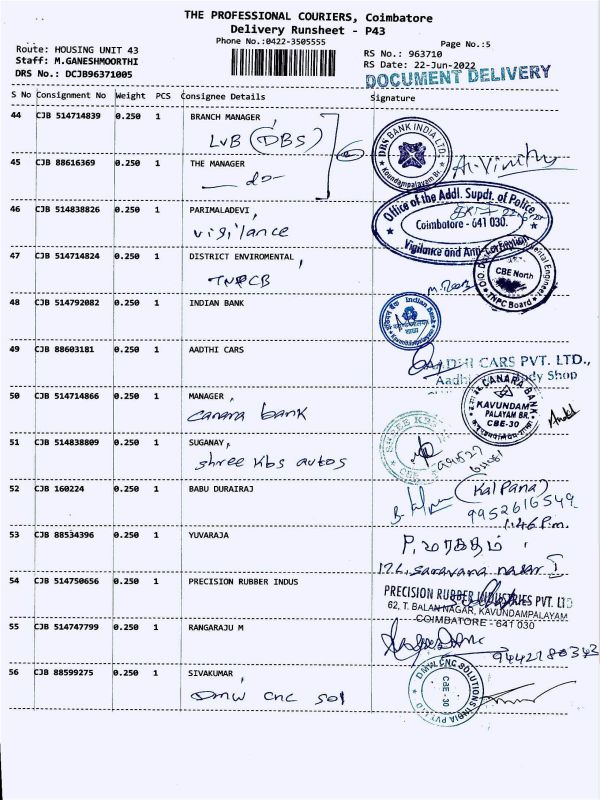 THE PROFESSIONAL COURIERS, Coimbatore
Delivery Runsheet - P43
Phone No.:0422-3505555
Page No.:5
Route: HOUSING UNIT 43
RS No.: 963710
Staff: M.GANESHMOORTHI
RS Date: 22-Jun-2022
DRS No.: DCJB96371005
DOCUMENT DELIVERY
S No Consignment No Weight PCS Consignee Details Signature
44 CJB 514714839 0.250 1 BRANCH MANAGER,
LVB (DBS)
DBS BANK INDIA LTD.
Koundampalayam Br.
45 CJB 88616369 0.250 1 THE MANAGER
— do —
46 CJB 514838826 0.250 1 PARIMALADEVI,
vigilance
Office of the Addl. Supdt. of Police
Coimbatore - 641 030.
Vigilance and Anti-Corruption
47 CJB 514714824 0.250 1 DISTRICT ENVIROMENTAL,
TNPCB
CBE North
TNPC Board
48 CJB 514792082 0.250 1 INDIAN BANK
Indian Bank
49 CJB 88603181 0.250 1 AADTHI CARS
AADHI CARS PVT. LTD.,
Aadhi Body Shop
50 CJB 514714866 0.250 1 MANAGER,
canara bank
CANARA BANK
KAVUNDAM
PALAYAM BR.
CBE-30
51 CJB 514838809 0.250 1 SUGANAY,
shree kbs autos
SHREE KBS
52 CJB 160224 0.250 1 BABU DURAIRAJ
(Kalpana)
9952616549
1.46 P.m.
53 CJB 88534396 0.250 1 YUVARAJA
P. மரகதம்
172, saravana nagar I
54 CJB 514750656 0.250 1 PRECISION RUBBER INDUS
PRECISION RUBBER INDUSTRIES PVT. LTD
62, T. BALAN NAGAR, KAVUNDAMPALAYAM
COIMBATORE - 641 030
55 CJB 514747799 0.250 1 RANGARAJU M
9442180343
56 CJB 88599275 0.250 1 SIVAKUMAR,
DMW CNC Sol
DMW CNC SOLUTIONS INDIA PVT LTD
CBE - 30